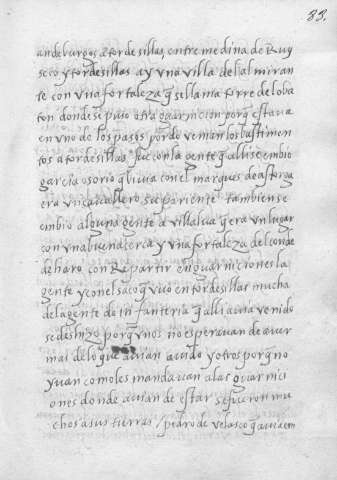 83.
an de burgos a tordesillas, entre medina de Ruy
seco y tordesillas ay una villa del almiran
te con una fortaleza q̃ se llama torre de loba
ton donde se paso otra guarnicion porq̃ estava
en uno de los pasos por do venian los bastimen
tos a tordesillas fue con la gente q̃ alli se embio
garcia osorio q̃ bivia con el marques de astorga
era un cavallero su pariente tambien se
embio alguna gente a villalva q̃ era un lugar
con una buena cerca y una fortaleza del conde
de haro con Repartir en guarniciones la
gente y con el saco q̃ uvo en tordesillas mucha
de la gente de infanteria q̃ alli avia venido
se deshizo porq̃ unos no esperavan de aver
mas de lo que avian avido y otros porq̃ no
yvan como les mandavan a las guarnici
ones donde avian de estar se fueron mu
chos a sus tierras / pedro de velasco q̃ avia